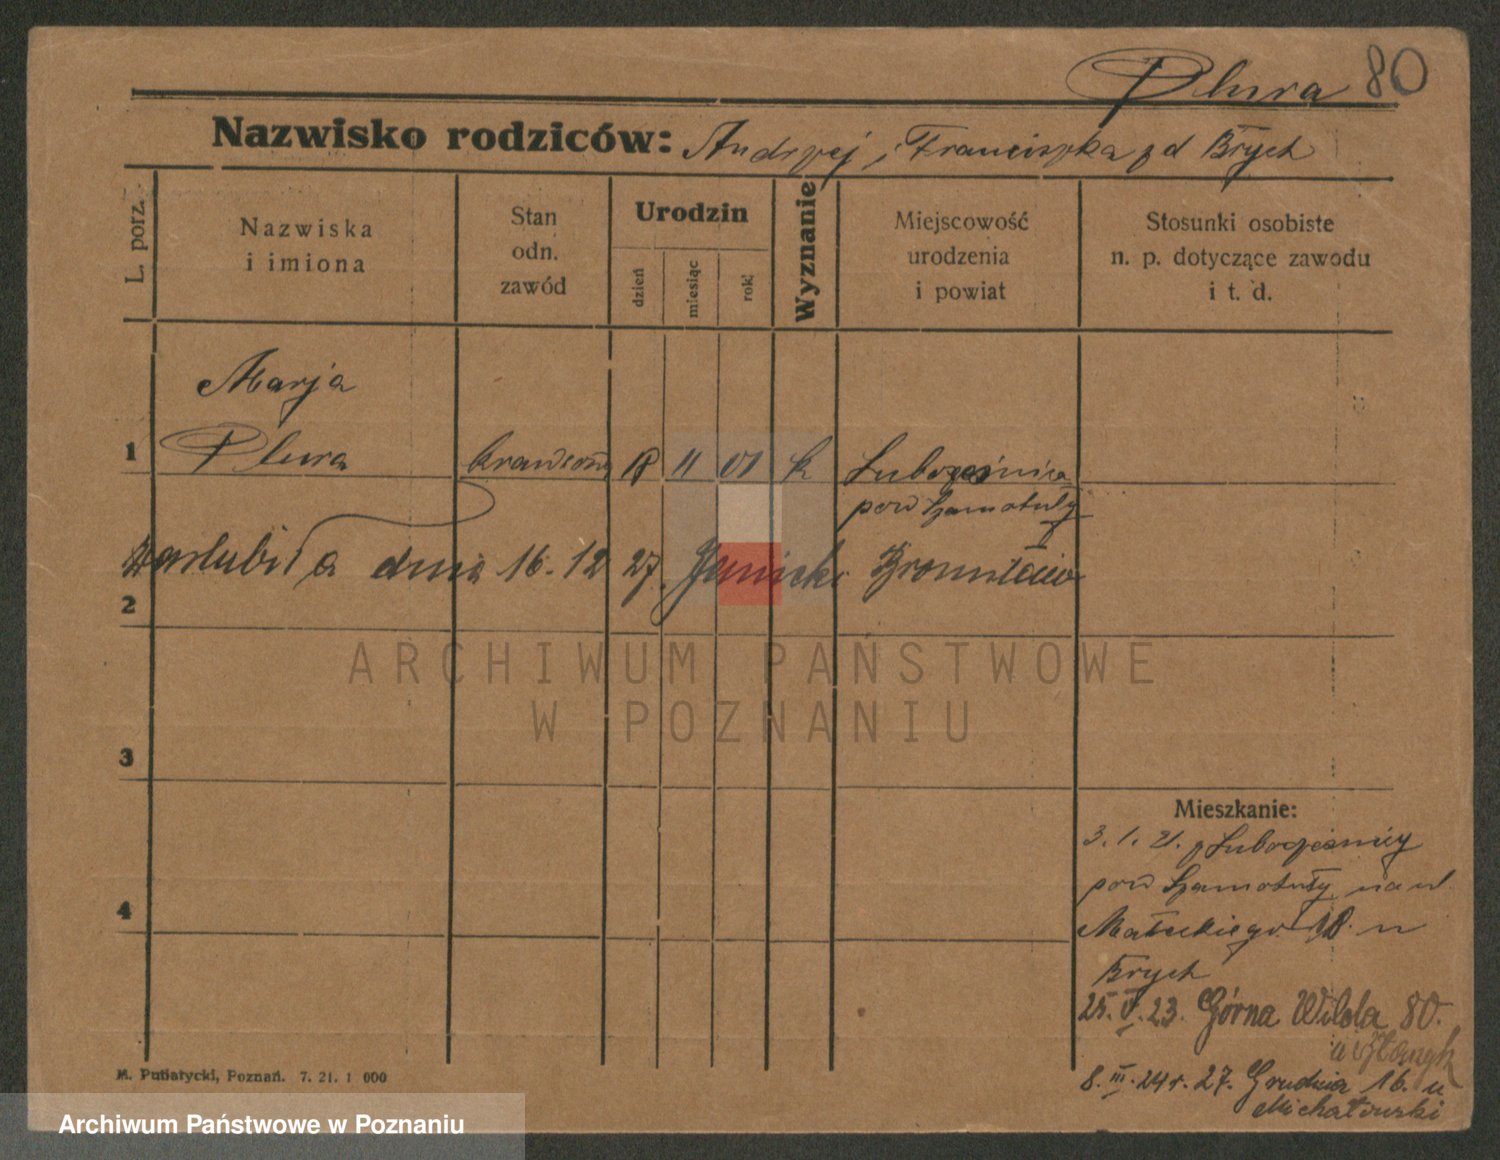 Plura 80
Nazwisko rodziców: Andrzej i Franciszka zd Brych
L. porz.
Nazwiska
i imiona
Stan
odn.
zawód
Urodzin
dzień
miesiąc
rok
Wyznanie
Miejscowość
urodzenia
i powiat
Stosunki osobiste
n. p. dotyczące zawodu
i t. d.
Marja
1 Plura krawcowa 18 11 01 k Lubosześnica
pow Szamotuły
Zaślubiła dnia 16.12 27. Janicki Bronisław
2
3
4
ARCHIWUM PAŃSTWOWE
W POZNANIU
Mieszkanie:
3. 1. 21. z
pow Szamotuły na ul.
Małeckiego 18. u
Brych
25. V. 23. Górna Wilda 80.
u
8. III. 24 r. 27. Grudnia 16. u
Michałowski
M. Putiatycki, Poznań. 7. 21. 1 000
Archiwum Państwowe w Poznaniu